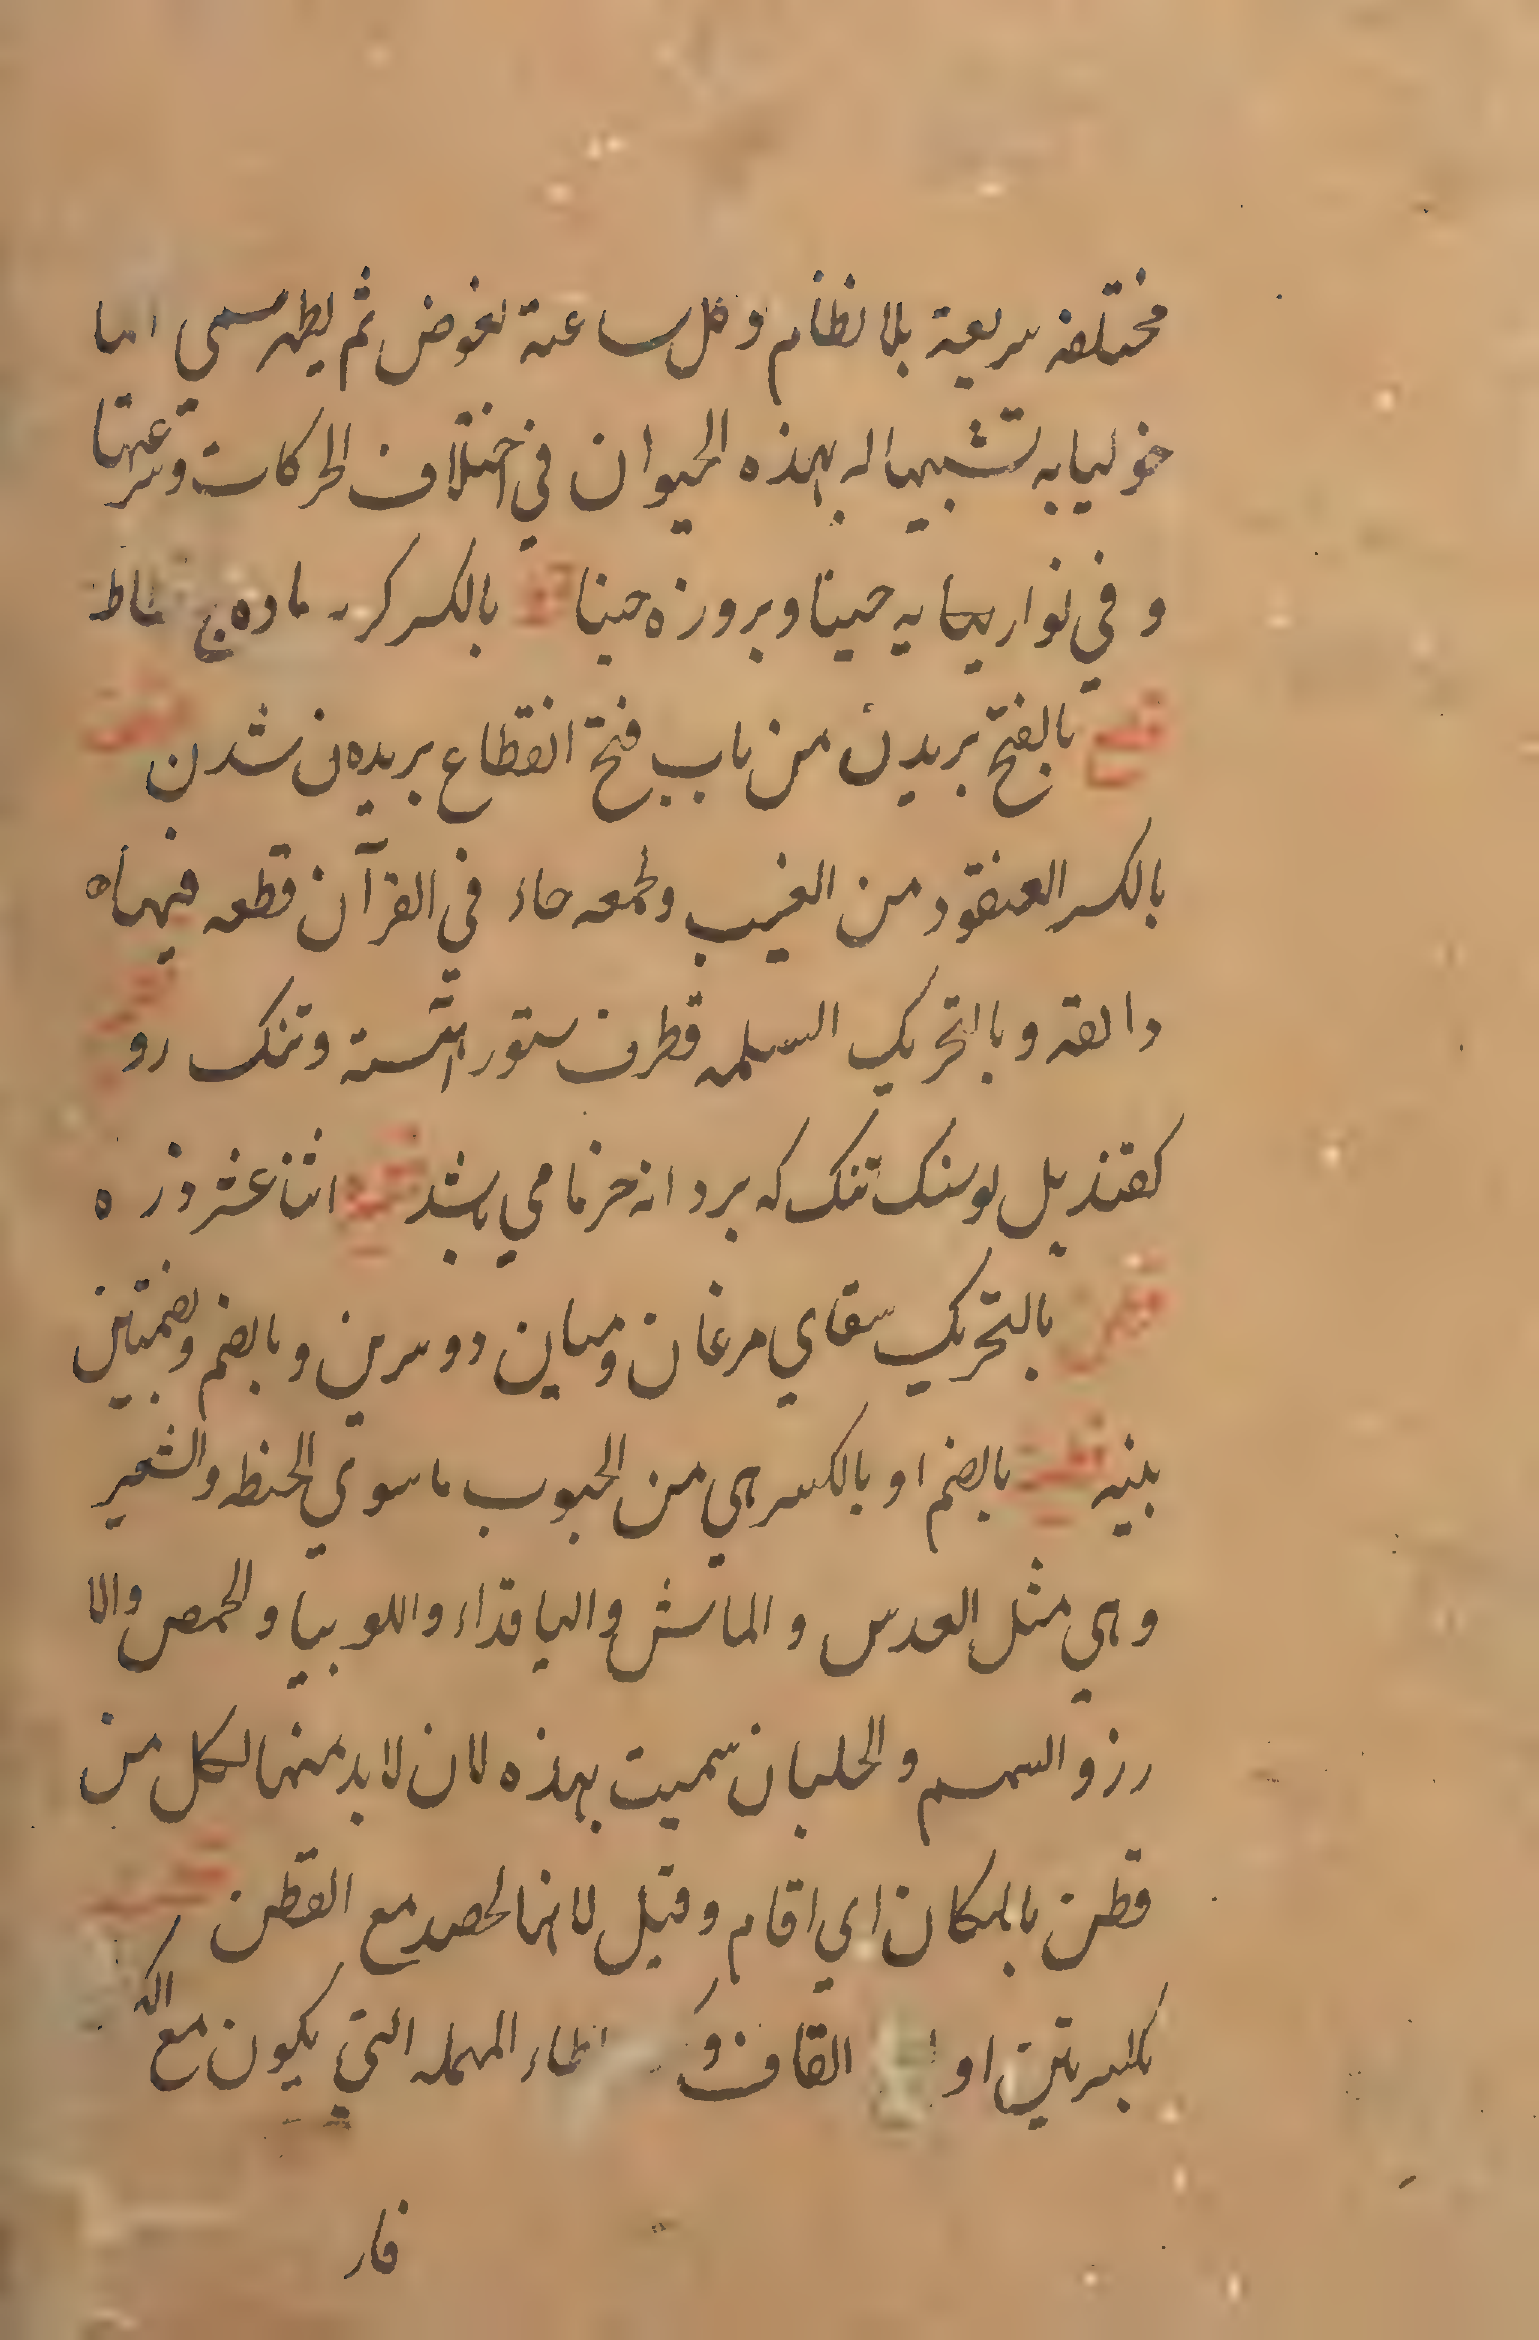 مختلفه سريعة بلا نظام و كل ساعة تغوض ثم يظهر سمى الما
خوليا به تشبيها له بهذه الحيوان في اختلاف الحركات و سرعتها
و في تواريها به حينا و بروزه حينا بالكسر كربه ماده
بالفتح بريدن من باب فتح انقطاع بريده ن شدن
بالكسر العنقود من العنب و جمعه جاء في القرآن قطعه فيهاه
دانقه و بالتحريك السلمه قطوف ستور آهسته و تنك رو
كقنديل پوستك تنك كه بر دانه خرما مي باشد اثنا عشر ذره
بالتحريك سقاي مرغان و ميان دو سرين و بالضم و بضمتين
پنبه بالضم او بالكسر هي من الحبوب ما سوي الحنطه والشعير
و هي مثل العدس و الماش و الباقلاء و اللوبيا و الحمص والا
رز و السمسم و الجلبان سميت بهذه لان لا بد منها لكل من
قطن بالمكان اي اقام و قيل لانها تحصد مع القطن
بكسرتين او القاف و الطاء المهمله التي يكون مع الله
فار